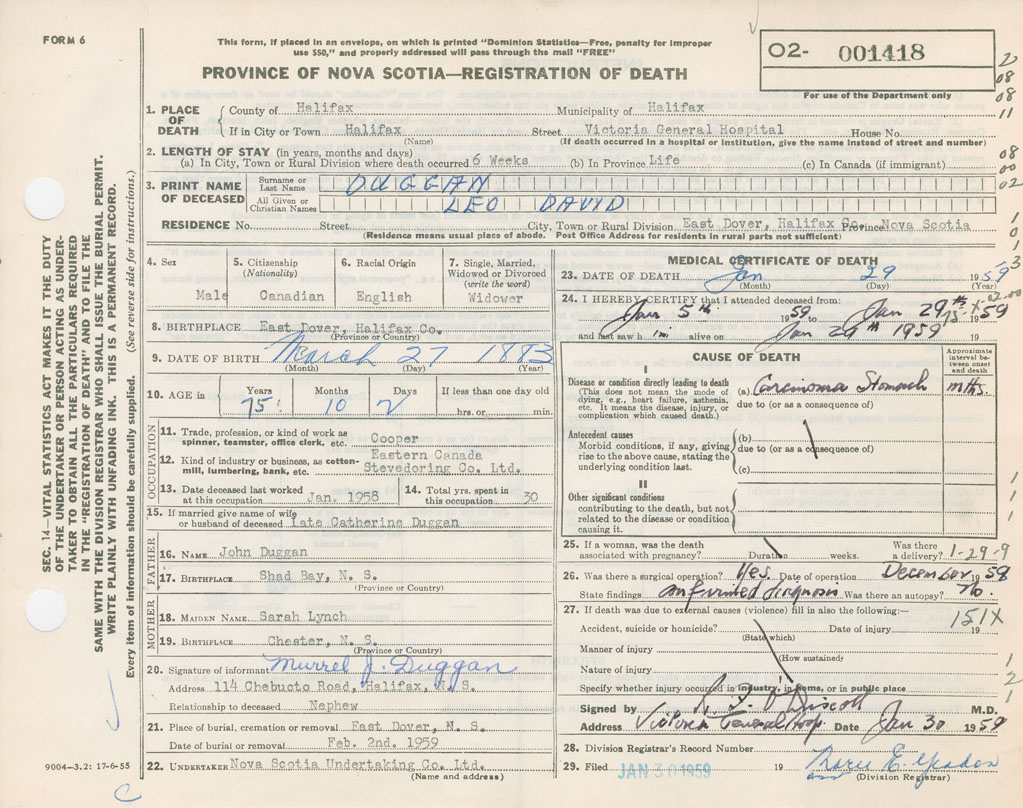 FORM 6
This form, if placed in an envelope, on which is printed "Dominion Statistics—Free, penalty for improper
use $50," and properly addressed will pass through the mail "FREE"
PROVINCE OF NOVA SCOTIA—REGISTRATION OF DEATH
O2- 001418
For use of the Department only
2
08
08
11
08
00
02
1
0
1
3
SEC. 14—VITAL STATISTICS ACT MAKES IT THE DUTY
OF THE UNDERTAKER OR PERSON ACTING AS UNDER-
TAKER TO OBTAIN ALL THE PARTICULARS REQUIRED
IN THE "REGISTRATION OF DEATH" AND TO FILE THE
SAME WITH THE DIVISION REGISTRAR WHO SHALL ISSUE THE BURIAL PERMIT.
WRITE PLAINLY WITH UNFADING INK. THIS IS A PERMANENT RECORD.
Every item of information should be carefully supplied. (See reverse side for instructions.)
1. PLACE OF DEATH
County of Halifax Municipality of Halifax
If in City or Town Halifax Street Victoria General Hospital House No.
(Name) (If death occurred in a hospital or institution, give the name instead of street and number)
2. LENGTH OF STAY (in years, months and days)
(a) In City, Town or Rural Division where death occurred 6 Weeks (b) In Province Life (c) In Canada (if immigrant)
3. PRINT NAME OF DECEASED
Surname or Last Name DUGGAN
All Given or Christian Names LEO DAVID
RESIDENCE No. Street City, Town or Rural Division East Dover, Halifax Co. Province Nova Scotia
(Residence means usual place of abode. Post Office Address for residents in rural parts not sufficient)
4. Sex Male
5. Citizenship (Nationality) Canadian
6. Racial Origin English
7. Single, Married, Widowed or Divorced (write the word) Widower
8. BIRTHPLACE East Dover, Halifax Co.
(Province or Country)
9. DATE OF BIRTH March 27 1883
(Month) (Day) (Year)
10. AGE in Years 75 Months 10 Days 2 If less than one day old
hrs. or min.
OCCUPATION
11. Trade, profession, or kind of work as spinner, teamster, office clerk, etc. Cooper
12. Kind of industry or business, as cotton-mill, lumbering, bank, etc. Eastern Canada Stevedoring Co. Ltd.
13. Date deceased last worked at this occupation Jan. 1958
14. Total yrs. spent in this occupation 30
15. If married give name of wife or husband of deceased Late Catherine Duggan
FATHER
16. NAME John Duggan
17. BIRTHPLACE Shad Bay, N. S.
(Province or Country)
MOTHER
18. MAIDEN NAME Sarah Lynch
19. BIRTHPLACE Chester, N. S.
(Province or Country)
20. Signature of informant Murrel J. Duggan
Address 114 Chebucto Road, Halifax, N. S.
Relationship to deceased Nephew
21. Place of burial, cremation or removal East Dover, N. S.
Date of burial or removal Feb. 2nd. 1959
22. UNDERTAKER Nova Scotia Undertaking Co. Ltd.
(Name and address)
9004—3.2: 17-6-55
C
MEDICAL CERTIFICATE OF DEATH
23. DATE OF DEATH Jan 29 1959
(Month) (Day) (Year)
24. I HEREBY CERTIFY that I attended deceased from:
Jan 5th 1959 to Jan 29th 1959
and last saw him alive on Jan 29th 1959
CAUSE OF DEATH
Approximate interval between onset and death
I
Disease or condition directly leading to death
(This does not mean the mode of dying, e.g., heart failure, asthenia, etc. It means the disease, injury, or complication which caused death.)
(a) Carcinoma Stomach mths.
due to (or as a consequence of)
Antecedent causes
Morbid conditions, if any, giving rise to the above cause, stating the underlying condition last.
(b)
due to (or as a consequence of)
(c)
II
Other significant conditions
contributing to the death, but not related to the disease or condition causing it.
25. If a woman, was the death associated with pregnancy? Duration weeks. Was there a delivery? 1-29-9
26. Was there a surgical operation? Yes. Date of operation December 1958
State findings confirmed diagnosis Was there an autopsy? No.
27. If death was due to external causes (violence) fill in also the following:— 151X
Accident, suicide or homicide? Date of injury 19
(State which)
Manner of injury
(How sustained)
Nature of injury
Specify whether injury occurred in industry, in home, or in public place
Signed by R. F. O'Driscoll M.D.
Address Victoria General Hosp. Date Jan 30 1959
28. Division Registrar's Record Number
29. Filed JAN 30 1959 19 Marie E.
(Division Registrar)